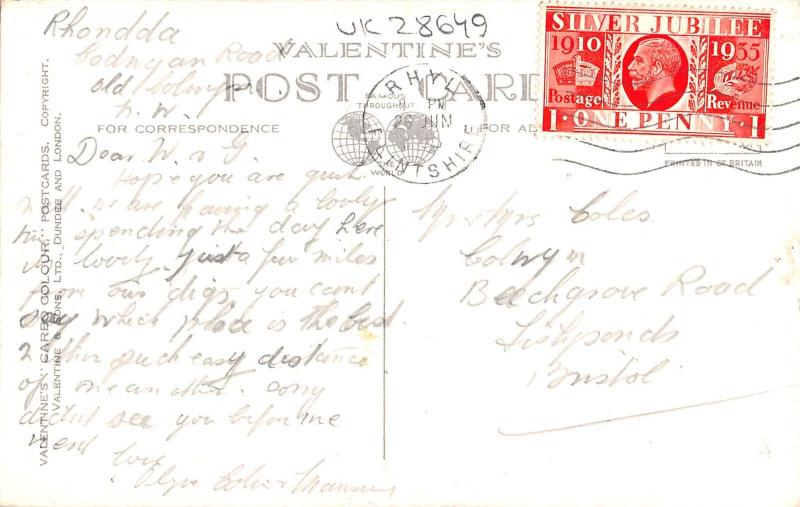 UK 28649
Rhondda
Road
Old
N. W.
VALENTINE'S
POST CARD
FAMOUS
THROUGHOUT
THE
WORLD
FOR CORRESPONDENCE
FOR AD
RHYL
PM
26 JUN
FLINTSHIRE
SILVER JUBILEE
1910 1935
Postage Revenue
1 · ONE PENNY · 1
PRINTED IN GT BRITAIN
VALENTINE'S "CARBO COLOUR" POSTCARDS. COPYRIGHT.
VALENTINE & SONS, LTD., DUNDEE AND LONDON.
Dear W. & G.
Hope you are quite
well. We are having a lovely
time spending the day here
its lovely just a few miles
from our digs you cant
say which place is the best
within such easy distance
of one another. Sorry
didnt see you before we
went
love
Mr & Mrs Coles
Colwyn
Beechgrove Road
Fishponds
Bristol